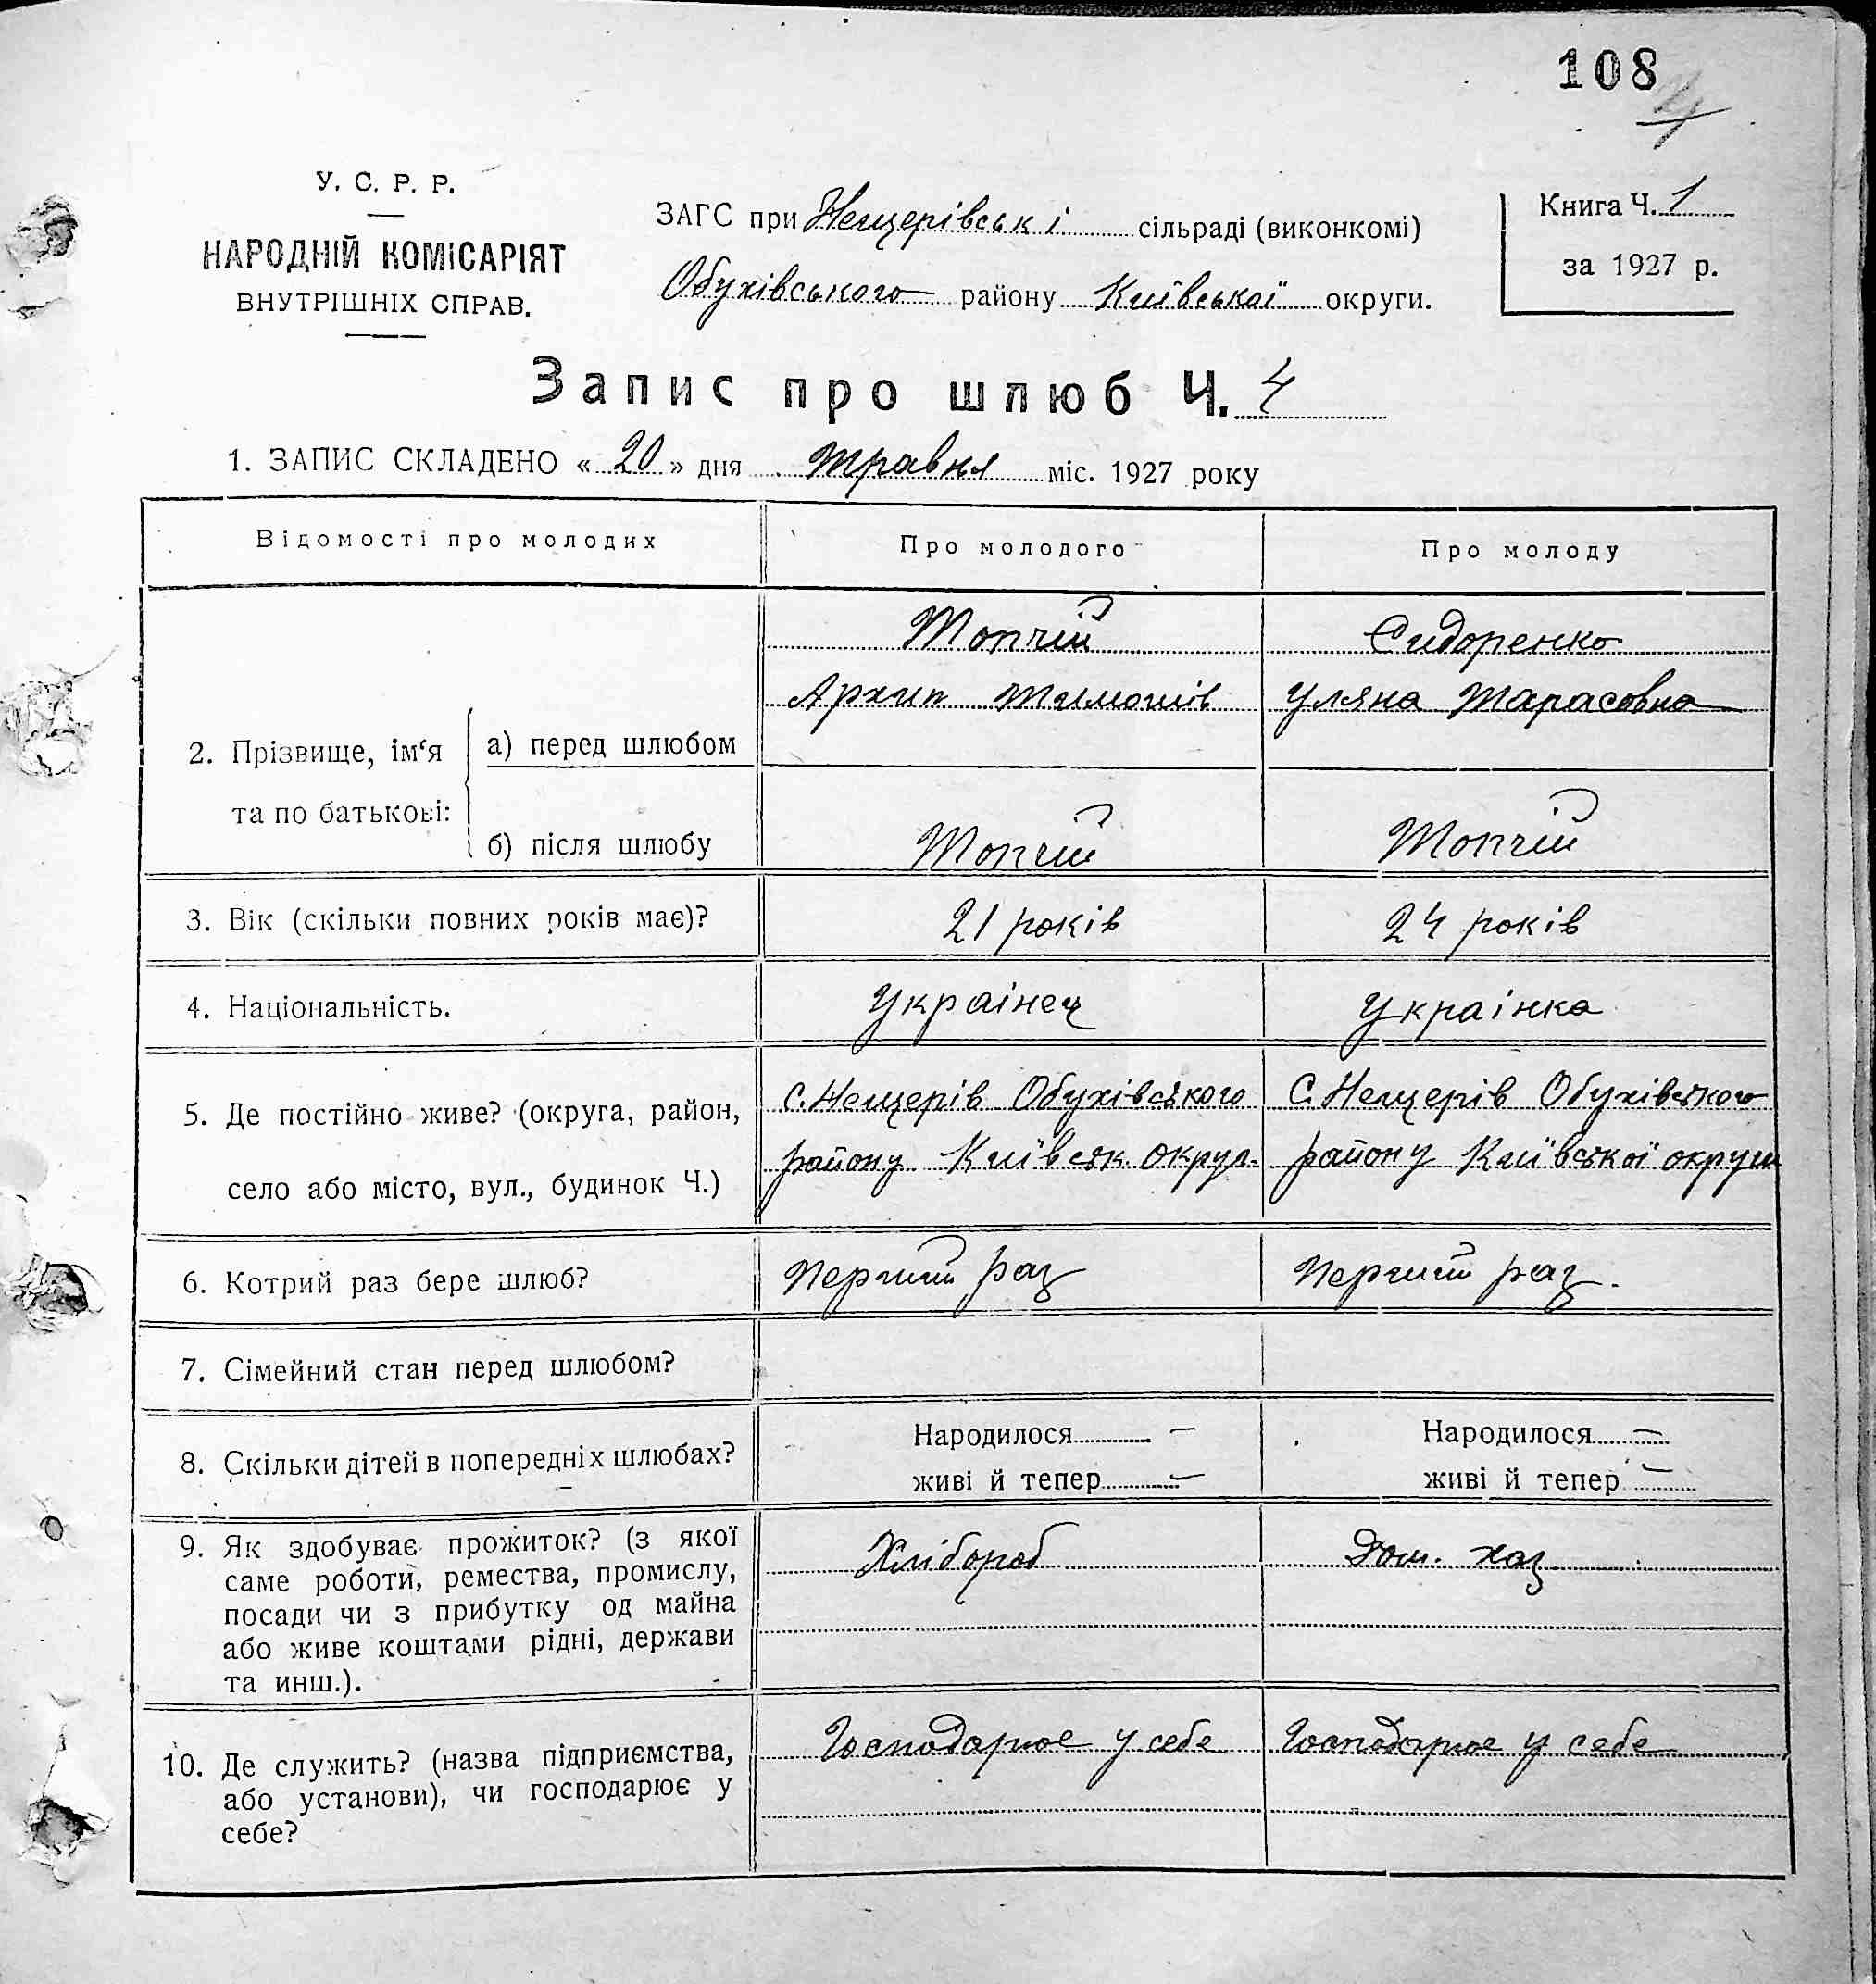 108
4
У. С. Р. Р.
НАРОДНІЙ КОМІСАРІЯТ
ВНУТРІШНІХ СПРАВ.
ЗАГС при Нещерівськ і сільраді (виконкомі)
Обухівського району Київської округи.
Книга Ч. 1
за 1927 р.
Запис про шлюб Ч. 4
1. ЗАПИС СКЛАДЕНО « 20 » дня травня міс. 1927 року
Відомості про молодих
Про молодого
Про молоду
2. Прізвище, ім‘я
та по батькові:
а) перед шлюбом
Топчій
Архип Тимошів
Сидоренко
Уляна Тарасовна
б) після шлюбу
Топчій
Топчій
3. Вік (скільки повних років має)?
21 років
24 років
4. Національність.
Украінец
Украінка
5. Де постійно живе? (округа, район,
село або місто, вул., будинок Ч.)
С. Нещерів Обухівського
району Київськ. округ.
С. Нещерів Обухівського
району Київської округи
6. Котрий раз бере шлюб?
Перший раз
Перший раз.
7. Сімейний стан перед шлюбом?
8. Скільки дітей в попередніх шлюбах?
Народилося —
живі й тепер —
Народилося —
живі й тепер —
9. Як здобуває прожиток? (з якої
саме роботи, ремества, промислу,
посади чи з прибутку од майна
або живе коштами рідні, держави
та инш.).
Хлібороб
Дом. хаз
10. Де служить? (назва підприємства,
або установи), чи господарює у
себе?
Господарює у себе
Господарює у себе